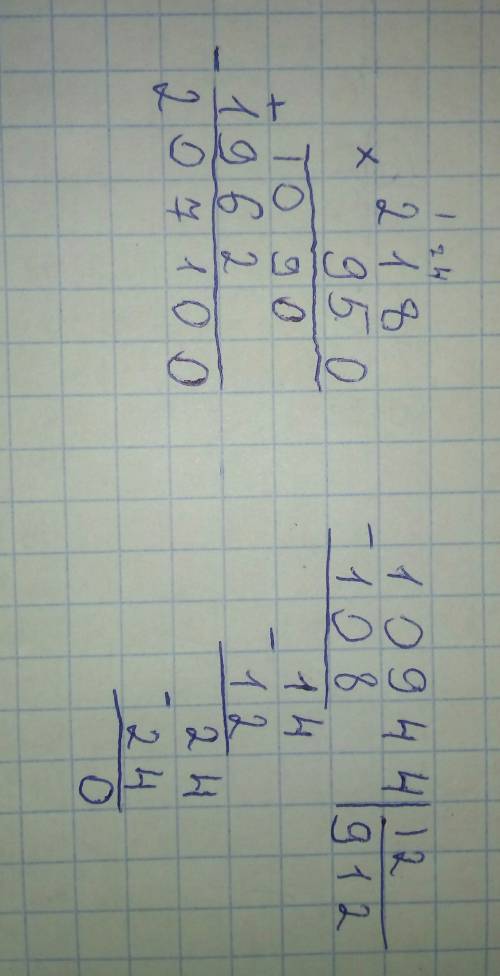 1 24
× 218
950
1090
+ 1962
207100
- 10944 | 12
108 | 912
- 14
12
- 24
24
0